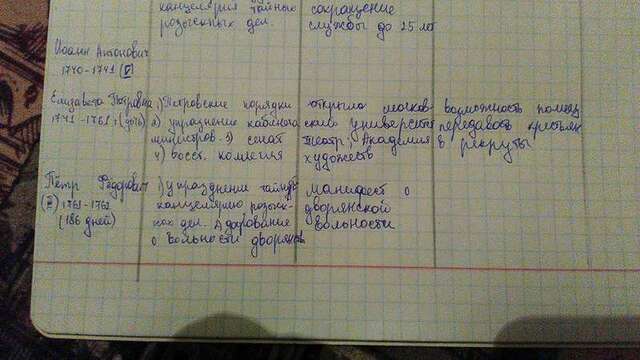 канцелярия тайных
розыскных дел.
сокращение
службы до 25 лет
Иоанн Антонович
1740-1741 (VI)
Елизавета Петровна
1741-1761 г (дочь)
1) Петровские порядки
2) упразднение кабинета
министров. 3) сенат
4) восст. коллегия
открыла москов-
ский университет
театр; Академия
художеств
возможность помещ
передавать крестьян
в рекруты
Пётр Фёдорович
(III) 1761-1762
(186 дней)
1) упразднение тайную
канцелярию розыск-
ных дел. 2 дарование
о вольности дворянов
манифест о
дворянской
вольности